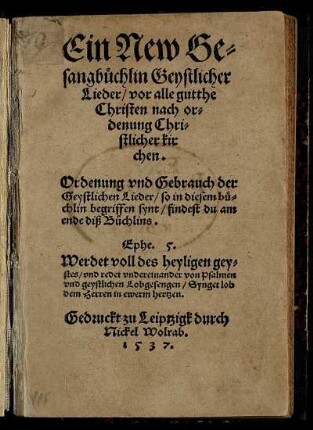 Ein New Ge-
sangbüchlin Geystlicher
Lieder/ vor alle gutthe
Christen nach or-
denung Chri-
stlicher kir
chen.
Ordenung vnd Gebrauch der
Geystlichen Lieder/ so in diesem bü-
chlin begriffen synt/ findest du am
ende diß Büchlins.
Ephe. 5.
Werdet voll des heyligen gey-
stes/ vnd redet vndereinander von Psalmen
vnd geystlichen Lobgesengen/ Synget lob
dem Herren in ewerm hertzen.
Gedruckt zu Leiptzigk durch
Nickel Wolrab.
1537.